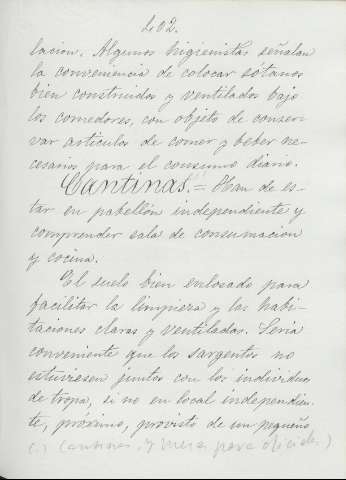 402.
lación. Algunos higienistas señalan
la conveniencia de colocar sótanos
bien construidos y ventilados bajo
los comedores, con objeto de conser-
var articulos de comer y beber ne-
cesarios para el consumo diario.
Cantinas.= Han de es-
tar en pabellón independiente y
comprender sala de consumación
y cocina.
El suelo bien enlosado para
facilitar la limpieza y las habi-
taciones claras y ventiladas. Seria
conveniente que los sargentos no
estuviesen juntos con los individuos
de tropa, si no en local independien-
te, próximo, provisto de un pequeño
y mesa para oficiales.)